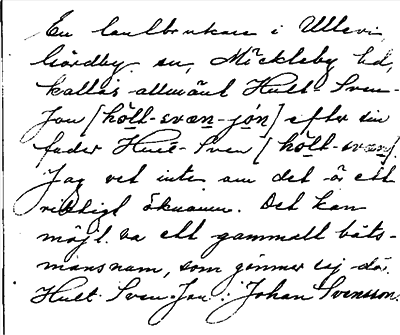 En lantbrukare i Ullevi
Gärdby sn, Möckleby hd,
kallas allmänt Hult-Sven-
Jan [hölt-svæn-jón] efter sin
fader Hult-Sven [hölt-svæn].
Jag vet inte om det är ett
riktigt öknamn. Det kan
möjl. va ett gammalt båts-
mansnam, som gömmer sej där.
Hult-Sven-Jan: Johan Svensson.